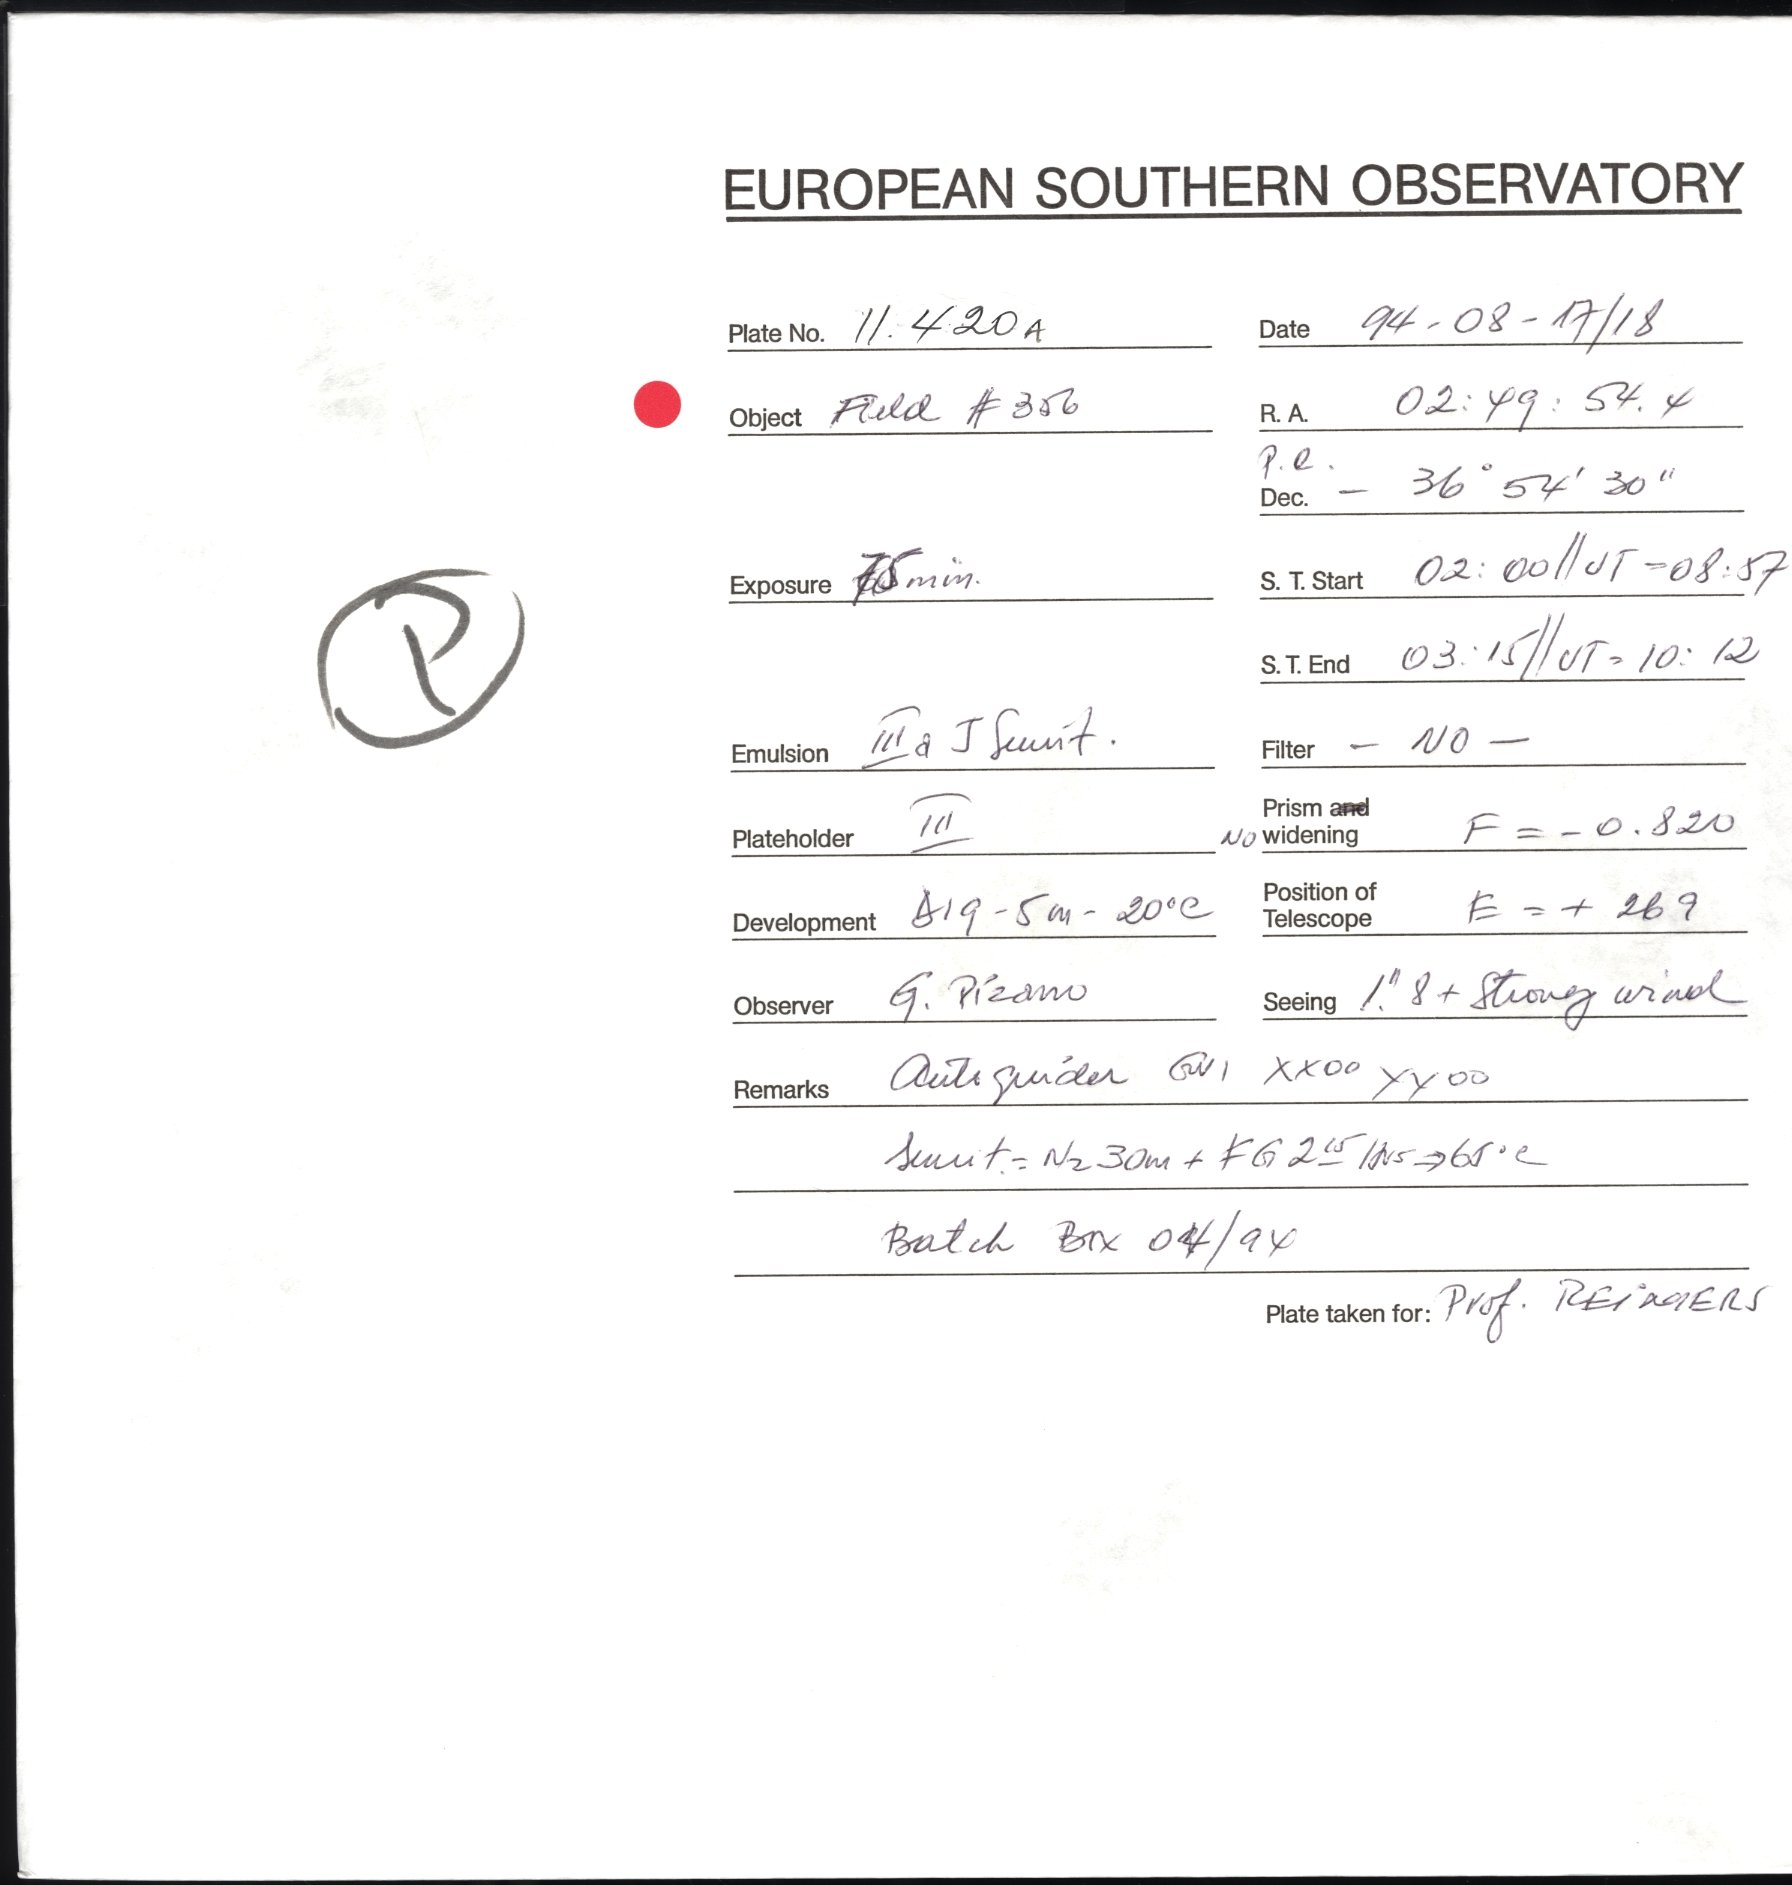 EUROPEAN SOUTHERN OBSERVATORY
Plate No. 11.420A Date 94-08-17/18
Object Field #356 R. A. 02:49:54.4
P.C.
Dec. - 36° 54' 30"
Exposure 75 min. S. T. Start 02:00//UT=08:57
S. T. End 03:15//UT=10:12
R
Emulsion III a J Sensit. Filter - NO -
Plateholder III NO Prism and widening F = -0.820
Development D19-5m-20°C Position of Telescope E = + 269
Observer G. Pizarro Seeing 1."8 + Strong wind
Remarks Autoguider GW1 XX00 YY00
Sensit.= N2 30m + FG 2 15 Hrs ⇒ 65°C
Batch Box 04/94
Plate taken for: Prof. REiMERS